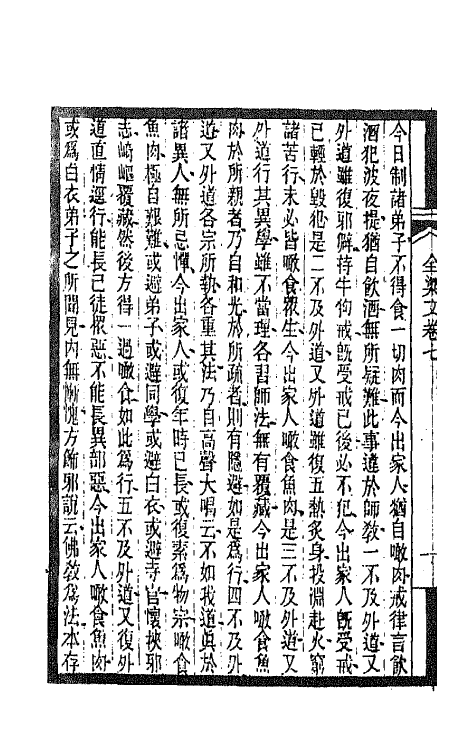 今日制諸弟子不得食一切肉而今出家人猶自噉肉戒律言飲
酒犯波夜提猶自飲酒無所疑難此事違於師教一不及外道又
外道雖復邪僻持牛狗戒旣受戒已後必不犯今出家人旣受戒
已輕於毀犯是二不及外道又外道雖復五熱炙身投淵赴火窮
諸苦行未必皆噉食衆生今出家人噉食魚肉是三不及外道又
外道行其異學雖不當理各習師法無有覆藏今出家人噉食魚
肉於所親者乃自和光於所疏者則有隱避如是爲行四不及外
道又外道各宗所執各重其法乃自高聲大唱云不如我道眞於
諸異人無所忌憚今出家人或復年時已長或復素爲物宗噉食
魚肉極自艱難或避弟子或避同學或避白衣或避寺官懷挾邪
志崎嶇覆藏然後方得一過噉食如此爲行五不及外道又復外
道直情逕行能長己徒衆惡不能長異部惡今出家人噉食魚肉
或爲白衣弟子之所聞見內無慚愧方飾邪說云佛教爲法本存
全梁文卷七